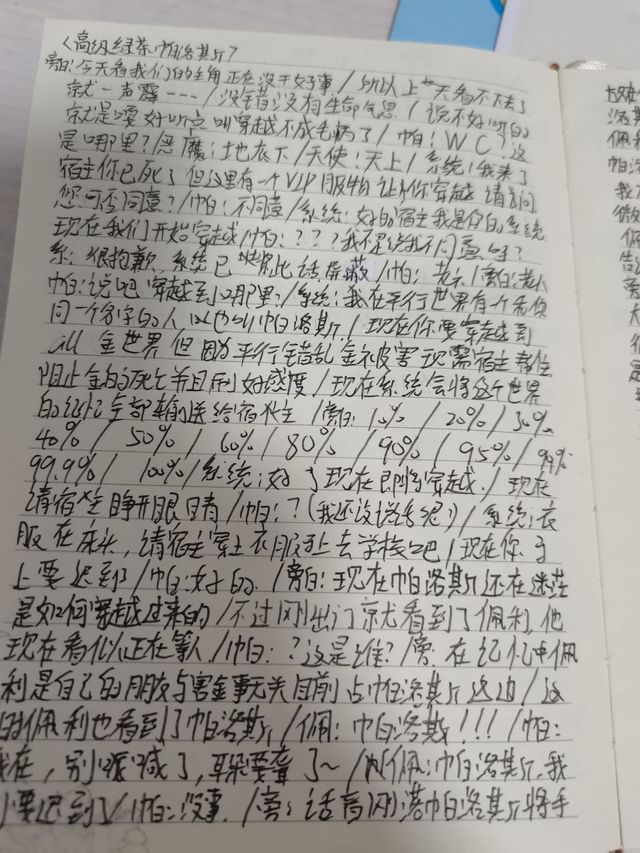 《高级绿茶 帕洛斯》
旁白:今天看我们的主角正在没干好事./所以上天看不下去了
就一声霹----/没错没有生命气息./说不好听的
就是噶好听点叫穿越不成毛病了/帕:WC?这
是哪里?/恶魔:地衣下/天使:天上/系统:我来了
宿主你已死了但这里有一个VIP服物让你穿越请问
您可否同意?/帕:不同意/系统:好的宿主我是你的系统
现在我们开始穿越/帕:???我不是说我不同意吗?
系:很抱歉.系统已将此话屏蔽/帕:/旁白:
帕:说吧穿越到哪里?/系统:我在平行世界有一个和你
同一个名字的人以也叫帕洛斯/现在你要穿越到
all金世界但因平行错乱金被害现需宿主
阻止金的死亡并且刷好感度/现在系统会将这个世界
的记忆全部输送给宿主/旁白:10%/20%/30%
40%/50%/60%/80%/90%/95%/99%
99.9%/100%/系统:好了现在即将穿越./现在
请宿主睁开眼睛/帕:?(我还没说话呢?)/系统:衣
服在床头,请宿主穿上衣服马上去学校吧/现在你马
上要迟到了/帕:好的./旁白:现在帕洛斯还在迷茫
是如何穿越过来的/不过刚出门就看到了佩利,他
现在看似正在等人/帕:?这是谁?/旁:在记忆中佩
利是自己的朋友与害金事无关目前占帕洛斯这边/这
时佩利也看到了帕洛斯/佩:帕洛斯!!!/帕:
我在,别喊喊了,耳朵要聋了~/佩:帕洛斯,我
们要迟到了/帕:没事./旁:话音刚落帕洛斯将手